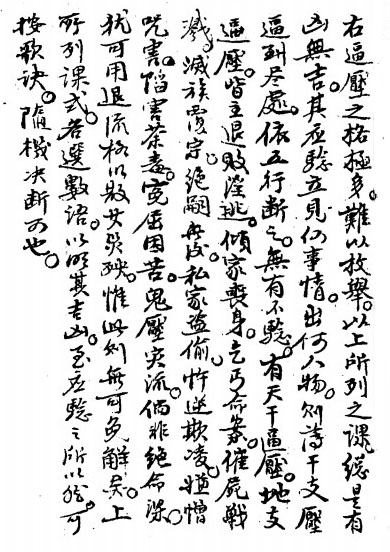 右逼壓之格極多。難以枚舉。以上所列之課。總是有
凶無吉。其应驗立見何事情。出何人物。則干支壓
逼到尽處。依五行斷之。無有不驗。有天干逼壓。地支
逼壓。皆主退敗淫逃。傾家喪身。乞丐命案。催屍戰
滅族覆宗。絕嗣無後。私家盜偷。忤逆欺凌。嫌憎
咒害。陷害荼毒。寃屈困苦。鬼壓流。倘非絕命深
犹可用退流格以散其災殃。惟此则無可免解矣。上
所列課式。各選數語。以明其吉凶。至应驗之所以然。可
按歌訣。隨機决斷可也。